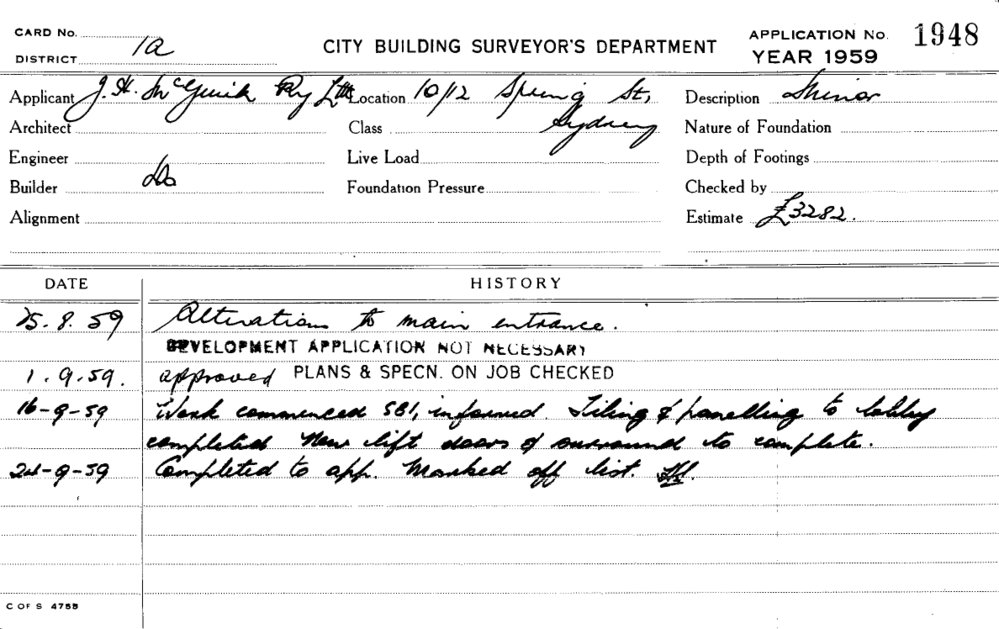 CARD No.
CITY BUILDING SURVEYOR'S DEPARTMENT
APPLICATION No. 1948
DISTRICT 1a
YEAR 1959
Applicant J. H. McGuirk Pty Ltd Location 10/12 Spring St, Description Minor
Architect Class Sydney Nature of Foundation
Engineer Live Load Depth of Footings
Builder Do Foundation Pressure Checked by
Alignment Estimate £3282.
DATE HISTORY
25.8.59 Alterations to main entrance.
DEVELOPMENT APPLICATION NOT NECESSARY
1.9.59. approved PLANS & SPECN. ON JOB CHECKED
16-9-59 Work commenced SBI, informed. Tiling & panelling to lobby
completed New lift doors & surround to complete.
24-9-59 Completed to app. Marked off list.
C OF S 475B